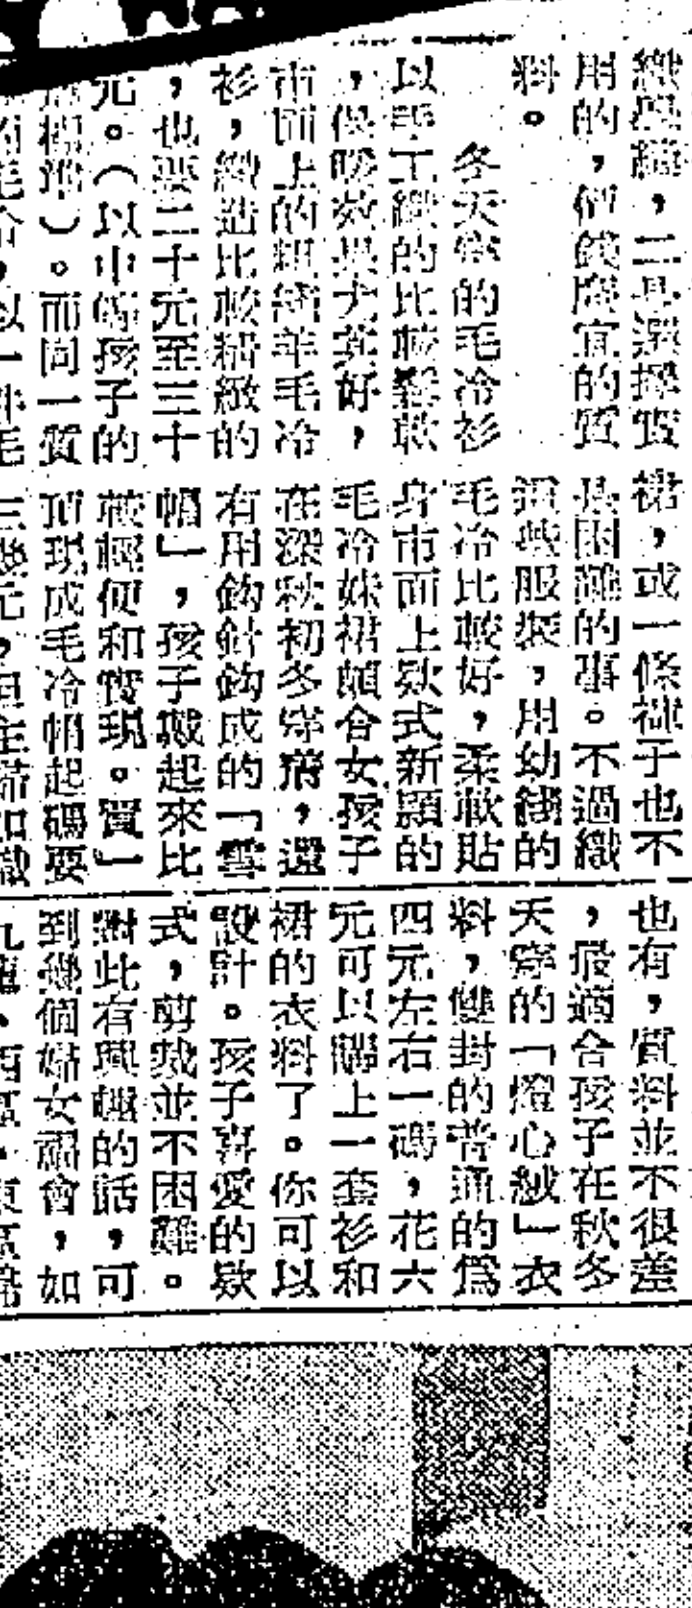 織與縫，二是選擇實
用的，價錢廉宜的質
料。
冬天穿的毛冷衫
以手工織的比較鬆軟
，保暖效果尤其好，
市面上的粗綫羊毛冷
衫，織造比較精緻的
，也要二十元至三十
元。（以中碼孩子的
標準）。而同一質
毛冷，以一件毛
裙，或一條褲子也不
是困難的事。不過織
這些服裝，用幼綫的
毛冷比較好，柔軟貼
身市面上欵式新穎的
毛冷妹裙頗合女孩子
在深秋初冬穿着，還
有用鈎針鈎成的「雪
帽」，孩子戴起來比
較輕便和實現。買一
頂現成毛冷帽起碼要
三幾元，但
也有，質料並不很差
，最適合孩子在秋冬
天穿的「燈心絨」衣
料，雙封的普通的爲
四元左右一碼，花六
元可以購上一套衫和
裙的衣料了。你可以
設計。孩子喜愛的欵
式，剪裁並不困難。
對此有興趣的話，可
到幾個婦女福會，如
九龍、西區、東區